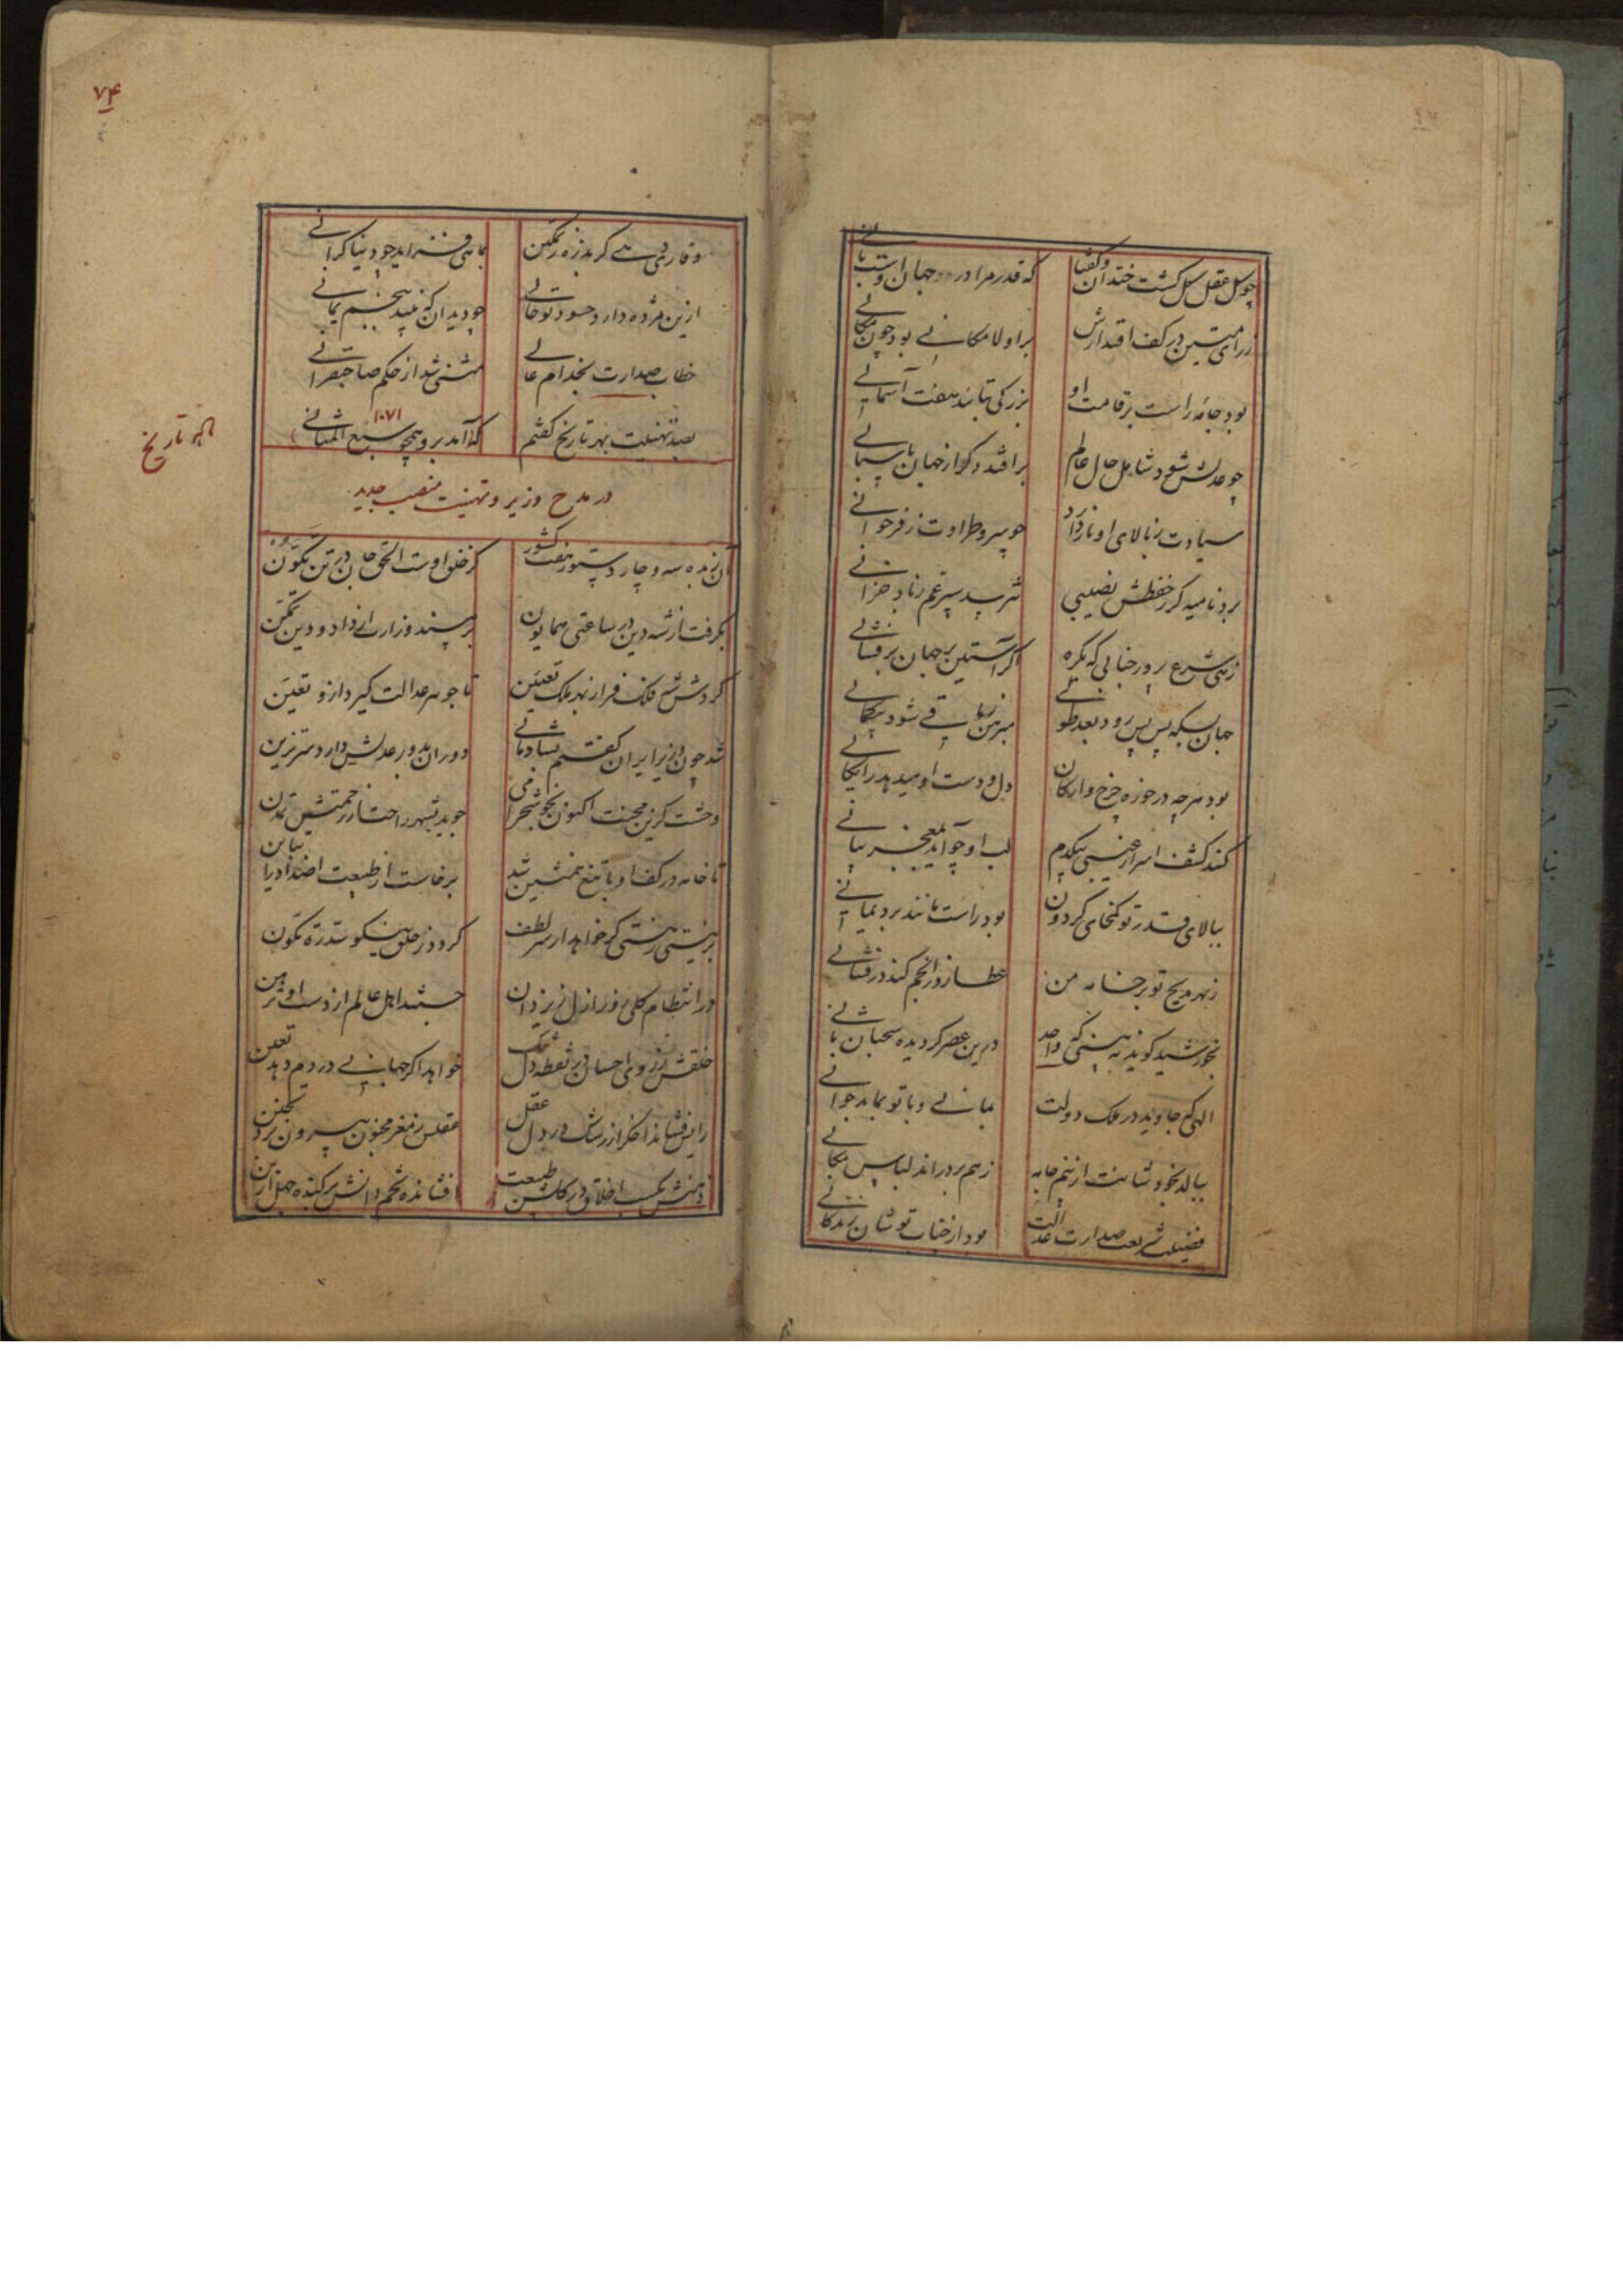 چو گل عقل کل گشت خندان و گفتا
که قدر مرا در جهان اوست بانی
زرای متین در کف اقتدارش
بر او لامکانی بود چون مکانی
بود جامه راست بر قامت او
بزرگی نهایند هفت آسمانی
چو عدلش شود شامل حال عالم
بر افتد دگر از جهان پاسبانی
سیادت ز بالای او ناز دارد
چو سرو طراوت ز فر جوانی
برد نامیه گر ز حفظش نصیبی
نترسد سپرغم ز باد خزانی
زهی شرع پرور جنابی که یکره
اگر آستین بر جهان برفشانی
جهان بسکه پس پس رود بعد طولی
مبرهن باقی شود بیکمانی
بود هرچه در حوزه چرخ و ارکان
دل و دست او میدهد رایگانی
کند کشف اسرار غیبی بیکدم
لب او چو آید بمعجز بیانی
ببالای قدر تو کمخای گردون
بود راست مانند برد یمانی
ز بهر مدیح تو بر خامه من
عطارد ز انجم کند درفشانی
بخورشید گویند به بینی که واحد
درین عصر گردیده سحبان ثانی
الهی که جاوید در ملک دولت
بمانی و با تو بماند جوانی
ببالد بخود شانت از نیم جامه
ز هم بر دراند لباس مکانی
فضیلت شریعت صدارت عدالت
بود از جناب تو شان زندگانی
۷۴
وقار ترا هست کز بذره تمکین
بماهی فزاید چو دنیا گرانی
ازین مژده دارد حسود تو حالی
چو دیدان که بیند بچشم یمانی
خطاب صدارت بخدام عالی
مثنی شد از حکم صاحبقرانی
بصد تهنیت بهر تاریخ گفتم
۱۰۷۱
که آمد برو همچو سبع المثانی
تاریخ
در مدح وزیر و تهنیت منصب جدید
آن زبده سه و چار دستور هفت کشور
کز خلق اوست الحق جان در تن تکون
بگرفت از شه دین در ساعتی همایون
بر مسند وزارت از داد و دین تمکن
کردش شه فلک فر از بهر ملک تعیین
تا جوهر عدالت گیرد ازو تعین
شد چون وزیر ایران گفتم بشادمانی
دوران بدور عدلش دارد سر تزین
وحشت گزین محنت اکنون بخوشخرامی
جوید بشهر راحت از رحمتش تمدن
تا خامه در کف او با تیغ همنشین شد
برخاست از طبیعت اضداد را تباین
بر نیستی هستی گر خواهد از سر لطف
گردد ز خلق نیکو سد ره تکون
در انتظام کلی روز ازل ز یزدان
جستند اهل عالم از دست او تیمن
خلقش ز روی احسان بر نقطه دل تنگ
خواهد اگر جهانی در دم دهد تعین
رایش فشاند اخگر از شاش در دل عقل
عقلش ز مغز مجنون بیرون برد تجنن
ذهنش بکسب اخلاق در گلشن طبیعت
افشانده تخم دانش بر کنده جهل از بن